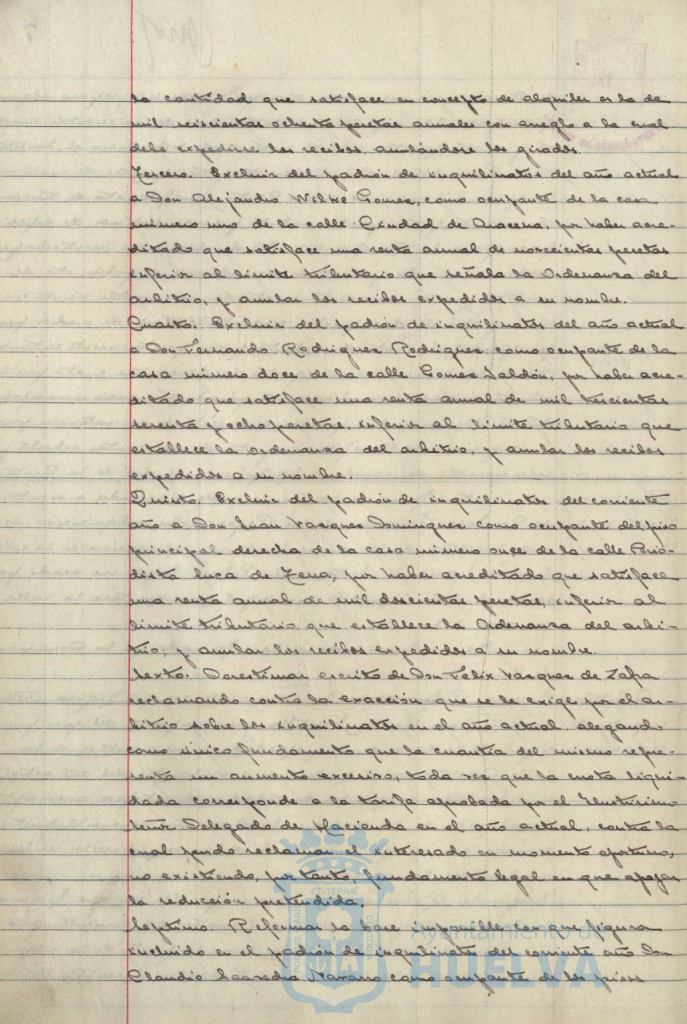 la cantidad que satisface en concepto de alquiler es la de
mil seiscientas ochenta pesetas anuales con arreglo a la cual
debe expedirse los recibos, anulándose los girados.
Tercero. Excluir del padrón de inquilinatos del año actual
a Don Alejandro Wilke Gomez, como ocupante de la casa
número uno de la calle Ciudad de Aracena, por haber acre-
ditado que satisface una renta anual de novecientas pesetas
inferior al límite tributario que señala la Ordenanza del
arbitrio, y anular los recibos expedidos a su nombre.
Cuarto. Excluir del padrón de inquilinatos del año actual
a Don Fernando Rodriguez Rodriguez como ocupante de la
casa número doce de la calle Gomez Jaldón, por haber acre-
ditado que satisface una renta anual de mil trescientas
sesenta y ocho pesetas, inferior al límite tributario que
establece la ordenanza del arbitrio, y anular los recibos
expedidos a su nombre.
Quinto. Excluir del padrón de inquilinatos del corriente
año a Don Juan Vazquez Dominguez como ocupante del piso
principal derecha de la casa número once de la calle Perio-
dista Luca de Tena, por haber acreditado que satisface
una renta anual de mil doscientas pesetas, inferior al
límite tributario que establece la Ordenanza del arbi-
trio, y anular los recibos expedidos a su nombre.
Sexto. Desestimar escrito de Don Felix Vazquez de Zafra
reclamando contra la exacción que se le exige por el ar-
bitrio sobre los inquilinatos en el año actual, alegando
como único fundamento que la cuantía del mismo repre-
senta un aumento excesivo, toda vez que la cuota liqui-
dada corresponde a la tarifa aprobada por el Ilustrísimo
Señor Delegado de Hacienda en el año actual, contra la
cual pudo reclamar el interesado en momento oportuno,
no existiendo, por tanto, fundamento legal en que apoyar
la reducción pretendida.
Septimo. Reformar la base imponible con que figura
incluido en el padrón de inquilinatos del corriente año Don
Claudio Saavedra Navarro como ocupante de los pisos
Ayuntamiento de
HUELVA